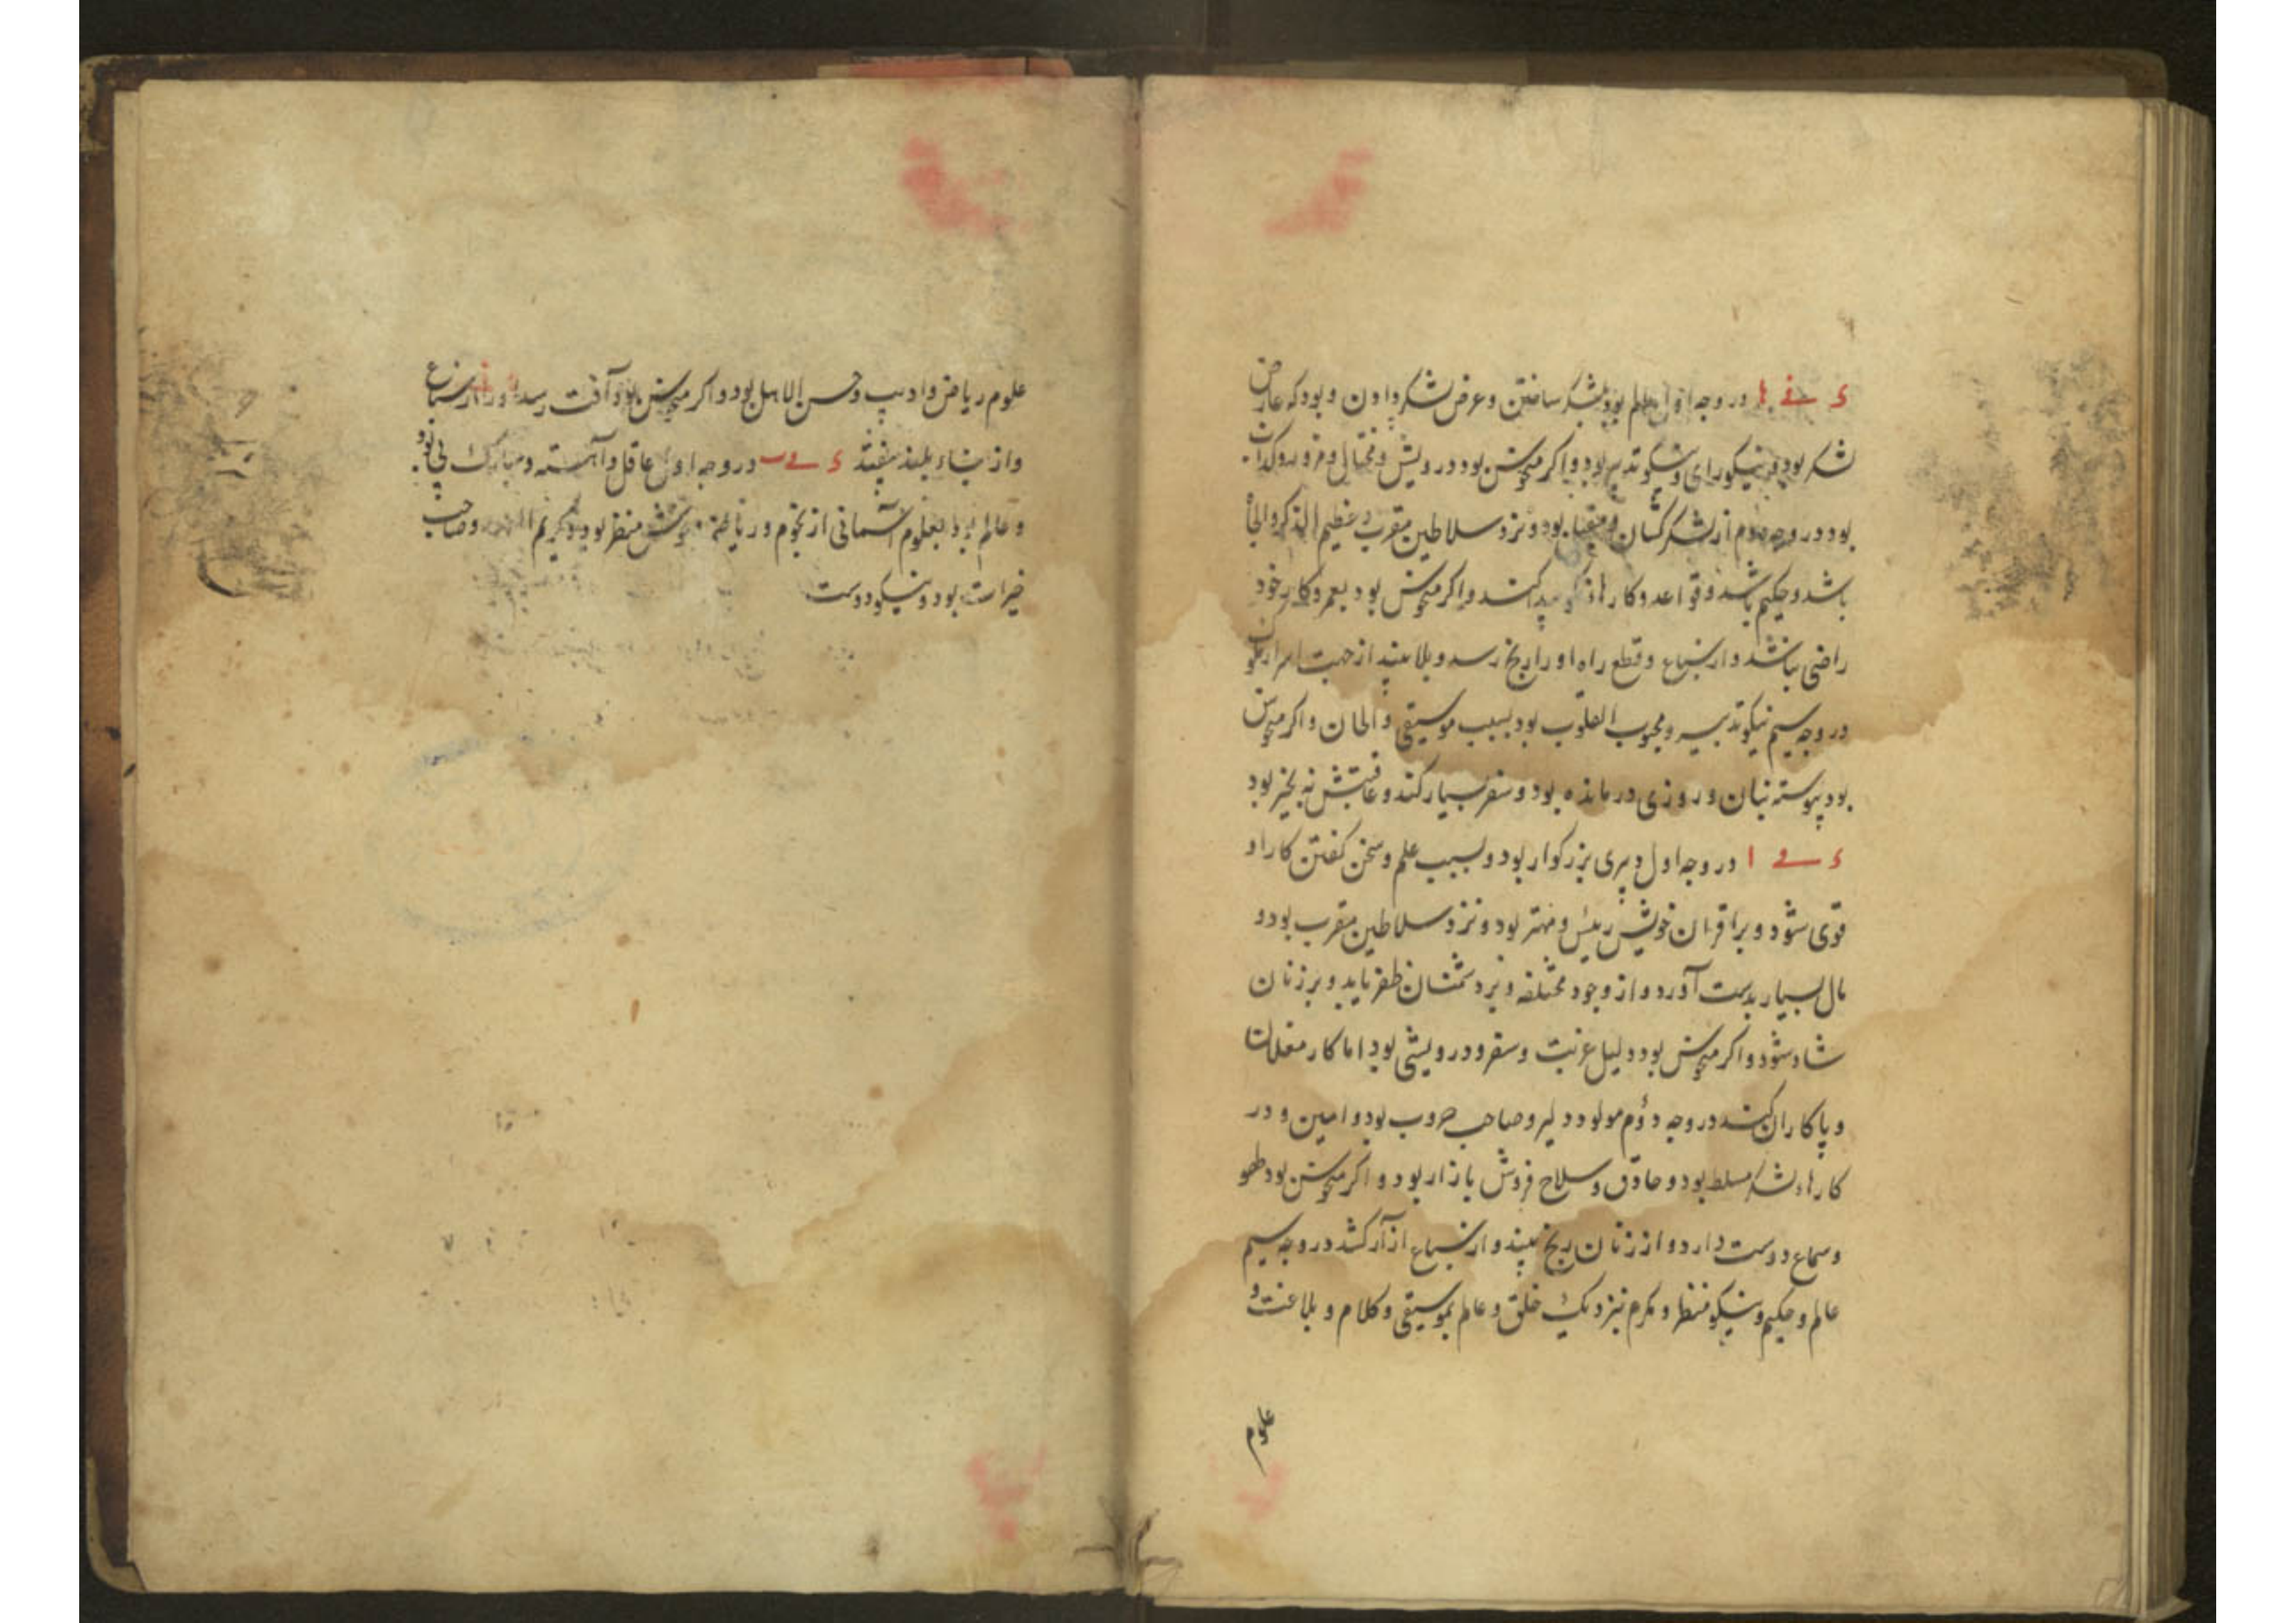 ء في ها در وجه اول عالم بود بلشکر ساختن و عرض لشکر دادن و بود که عارض
لشکر بود و نیکورای و نیکوتدبیر بود و اکر منحوس بود درویش و محتال و
بود در وجه دوم از لشکرکشان و بود و نزد سلاطین مقرب و عظیم الذکر و الجاه
باشد و حکیم باشد و قواعد و کارها نیکو پیدا کند و اکر منحوس بود بعمر و کار خود
راضی نباشد و از سباع و قطع راه او را رنج رسد و بلا بیند از جهت اسرار
در وجه سیم نیکوتدبیر و محبوب القلوب بود بسبب موسیقی و الحان و اکر منحوس
بود پیوسته بنان و روزی درمانده بود و سفر بسیار کند و عاقبتش نه بخیر بود
ء في ا در وجه اول دبیری بزرکوار بود و بسبب علم و سخن کفتن کار او
قوی شود و بر اقران خویش رئیس و مهتر بود و نزد سلاطین مقرب بود و
مال بسیار بدست آورد و از وجوه مختلفه و بر دشمنان ظفر یابد و بر زنان
شاد شود و اکر منحوس بود دلیل غربت و سفر و درویشی بود اما کار
و پاکاران کند در وجه دؤم مولود دلیر و صاحب حروب بود و امین و در
کارهاء لشکر مسلط بود و حاذق و سلاح فروش بازار بود و اکر منحوس بود لهو
و سماع دوست دارد و از زنان رنج بیند و از سباع آزار کشد در وجه سیم
عالم و حکیم و نیکو منظر و مکرم نزدیک خلق و عالم بموسیقی و کلام و بلاغت و
علوم
علوم ریاضی و ادیب و حسن الاهل بود و اکر منحوس بود آفت رسد او را از سباع
و از بناء بلند بیفتد ء في ب در وجه اول عاقل و آهسته و مبارک پی بود
و عالم بود بعلوم آسمانی از نجوم و ریاضة و خوش منظر بود و کریم و صاحب
خیرات بود و نیکودوست